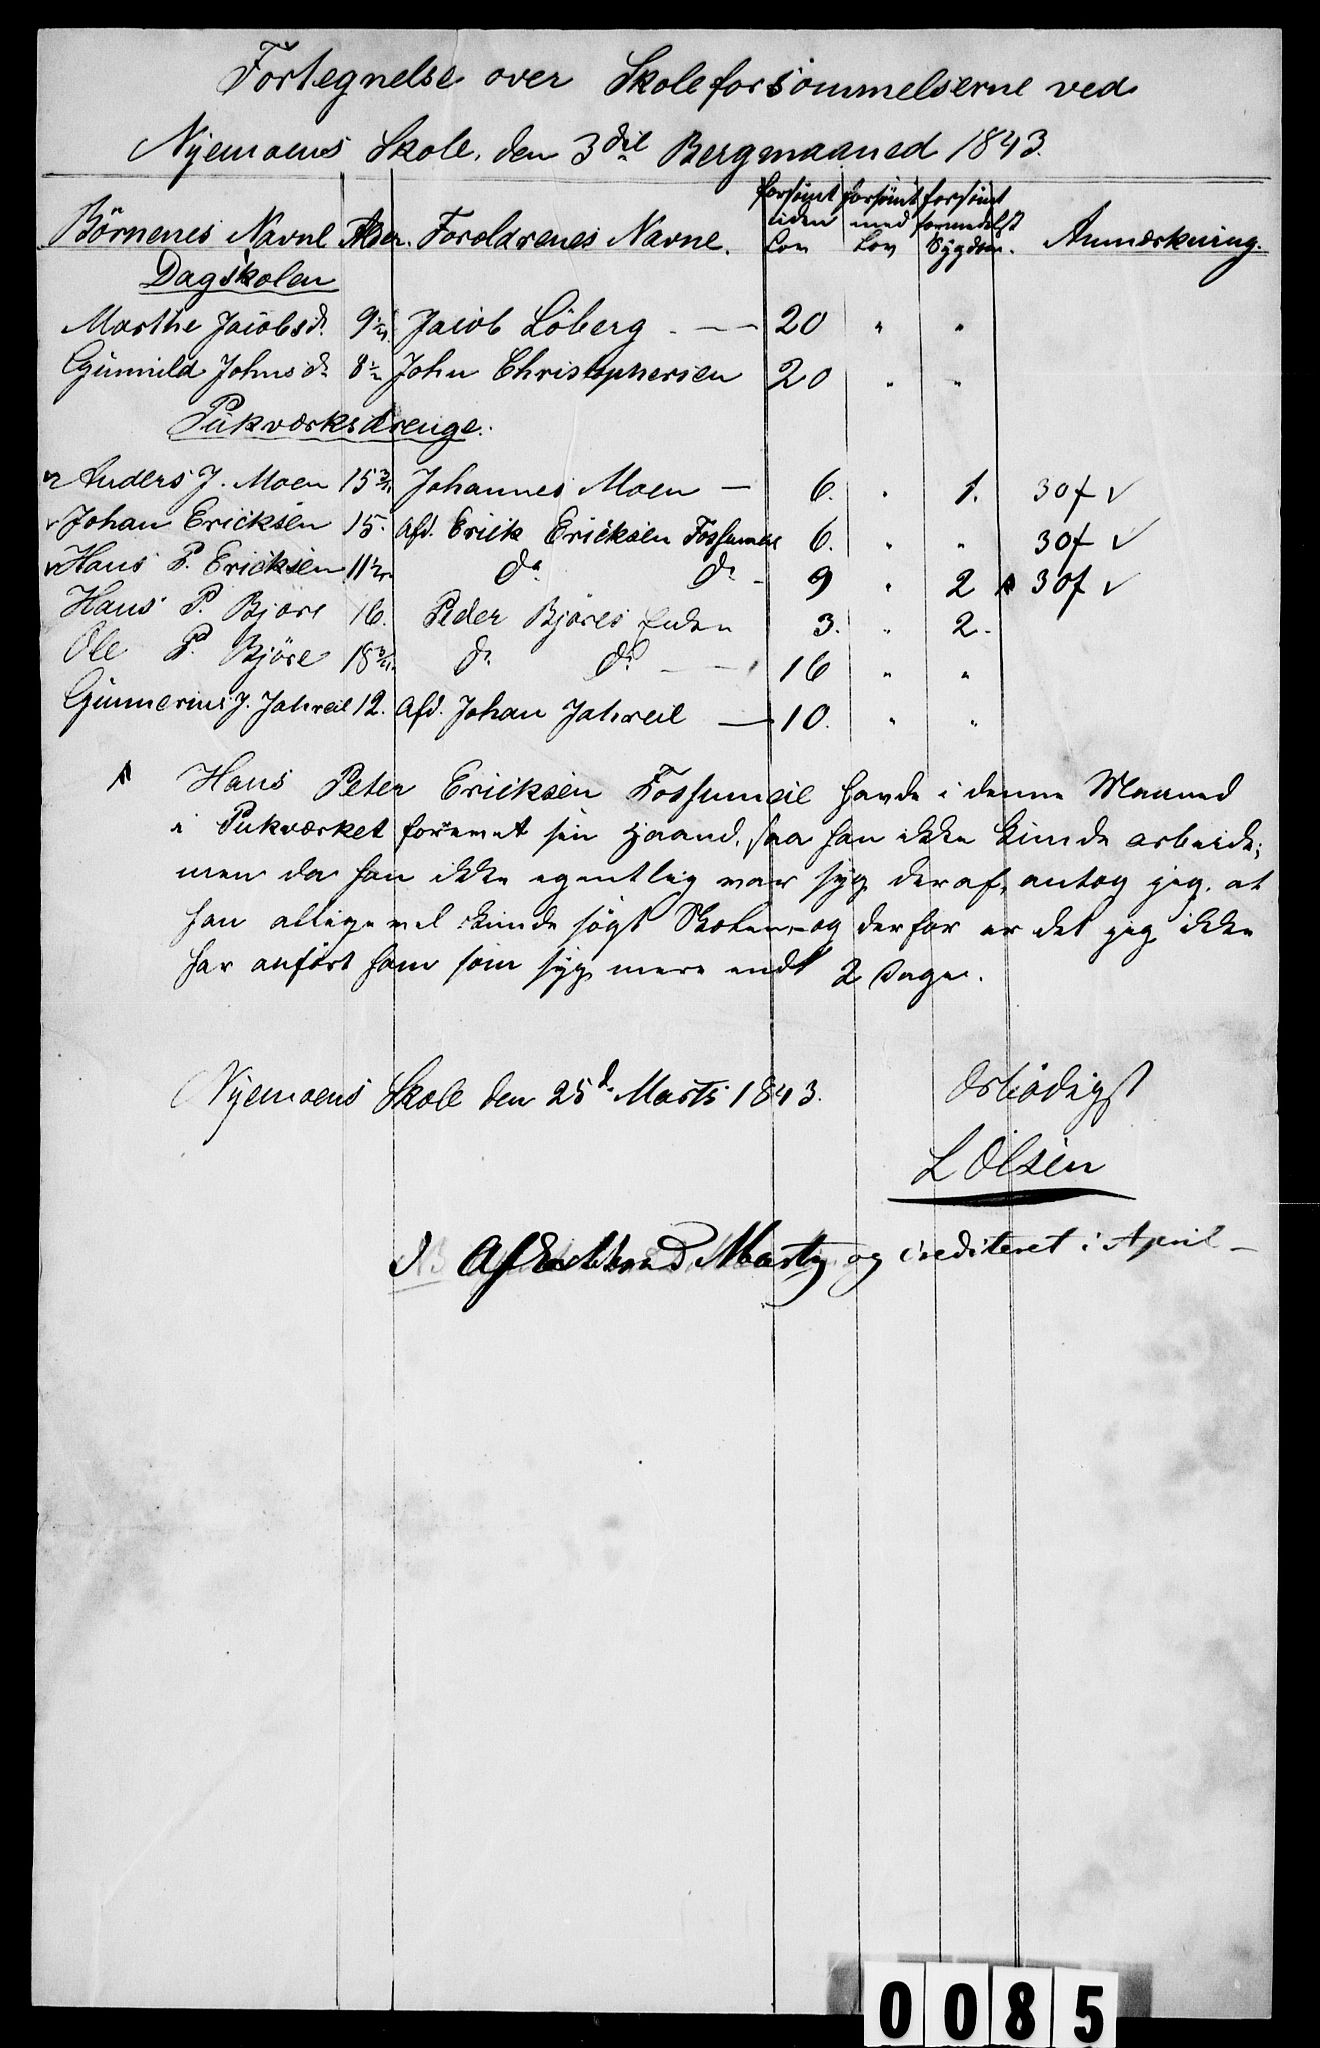 Fortegnelse over Skoleforsömmelserne ved
Nyemoens Skole, den 3die Bergmaaned 1843.
Börnenes Navne | Alder. | Forældrenes Navne. | forsömt uden Lov | forsömt med Lov | forsömt formedelst Sygdom. | Anmærkning.
Dagskolen
Marthe Jacobsd. | 9 | Jacob Löberg | 20 | " | "
Gunnild Johnsd. | 8½ | John Christophersen | 20 | " | "
Pukværksdrenge.
Anders J. Moen | 15 | Johannes Moen | 6. | " | 1. | 30f ✓
Johan Ericksen | 15. | Afd. Erick Ericksen Fossumeie | 6. | " | " | 30f ✓
Hans P. Ericksen | 11½ | do | do | 9 | " | 2 | 30f ✓
Hans P. Björe | 16. | Peder Björes Enke | 3. | " | 2.
Ole P. Björe | 18 | do | do | 16 | " | "
Gunnerius J. Jahreie | 12. | Afd. Johan Jahreie | 10. | " | "
Hans Peter Ericksen Fossumeie havde i denne Maaned
i Pukværket sin Haand, saa han ikke kunde arbeide;
men da han ikke egentlig var syg deraf, antog jeg, at
han alligevel kunde sögt Skolen, og derfor er det jeg ikke
har anfört ham som syg mere end 2 Dage.
Nyemoens Skole den 25d. Marts 1843.
Ærbödigst
L Olsen
og crediteret i April
0085